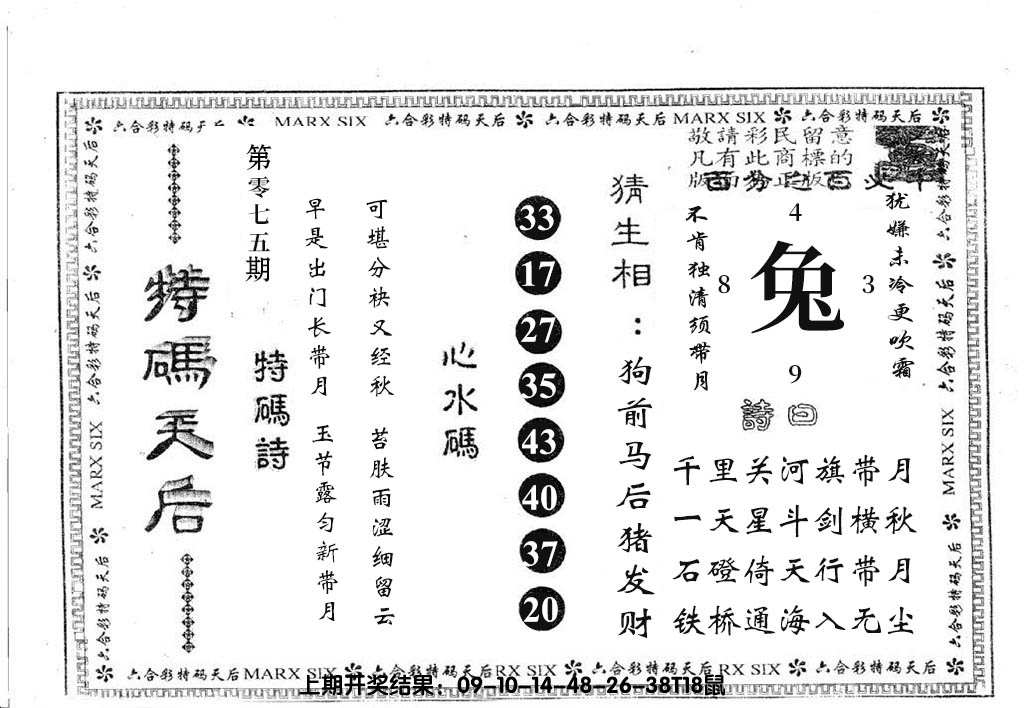 六合彩特码天后 MARX SIX 六合彩特码天后 六合彩特码天后 MARX SIX 六合彩特码天后
敬請彩民留意
凡有此商標的
特碼天后
第零七五期
特碼詩
早是出门长带月 玉节露匀新带月
可堪分袂又经秋 苔肤雨涩细留云
心水碼
33
17
27
35
43
40
37
20
猜生相:狗前马后猪发财
不肯独清须带月
4
8
兔
3
9
犹嫌未冷更吹霜
詩曰
千里关河旗带月
一天星斗剑横秋
石磴倚天行带月
铁桥通海入无尘
六合彩特码天后 MARX SIX 六合彩特码天后
六合彩特码天后 MARX SIX 六合彩特码天后
六合彩特码天后MARX SIX 六合彩特码天后RX SIX 六合彩特码天后RX SIX 六合彩特码天后
上期开奖结果：09-10-14-48-26-38T18鼠